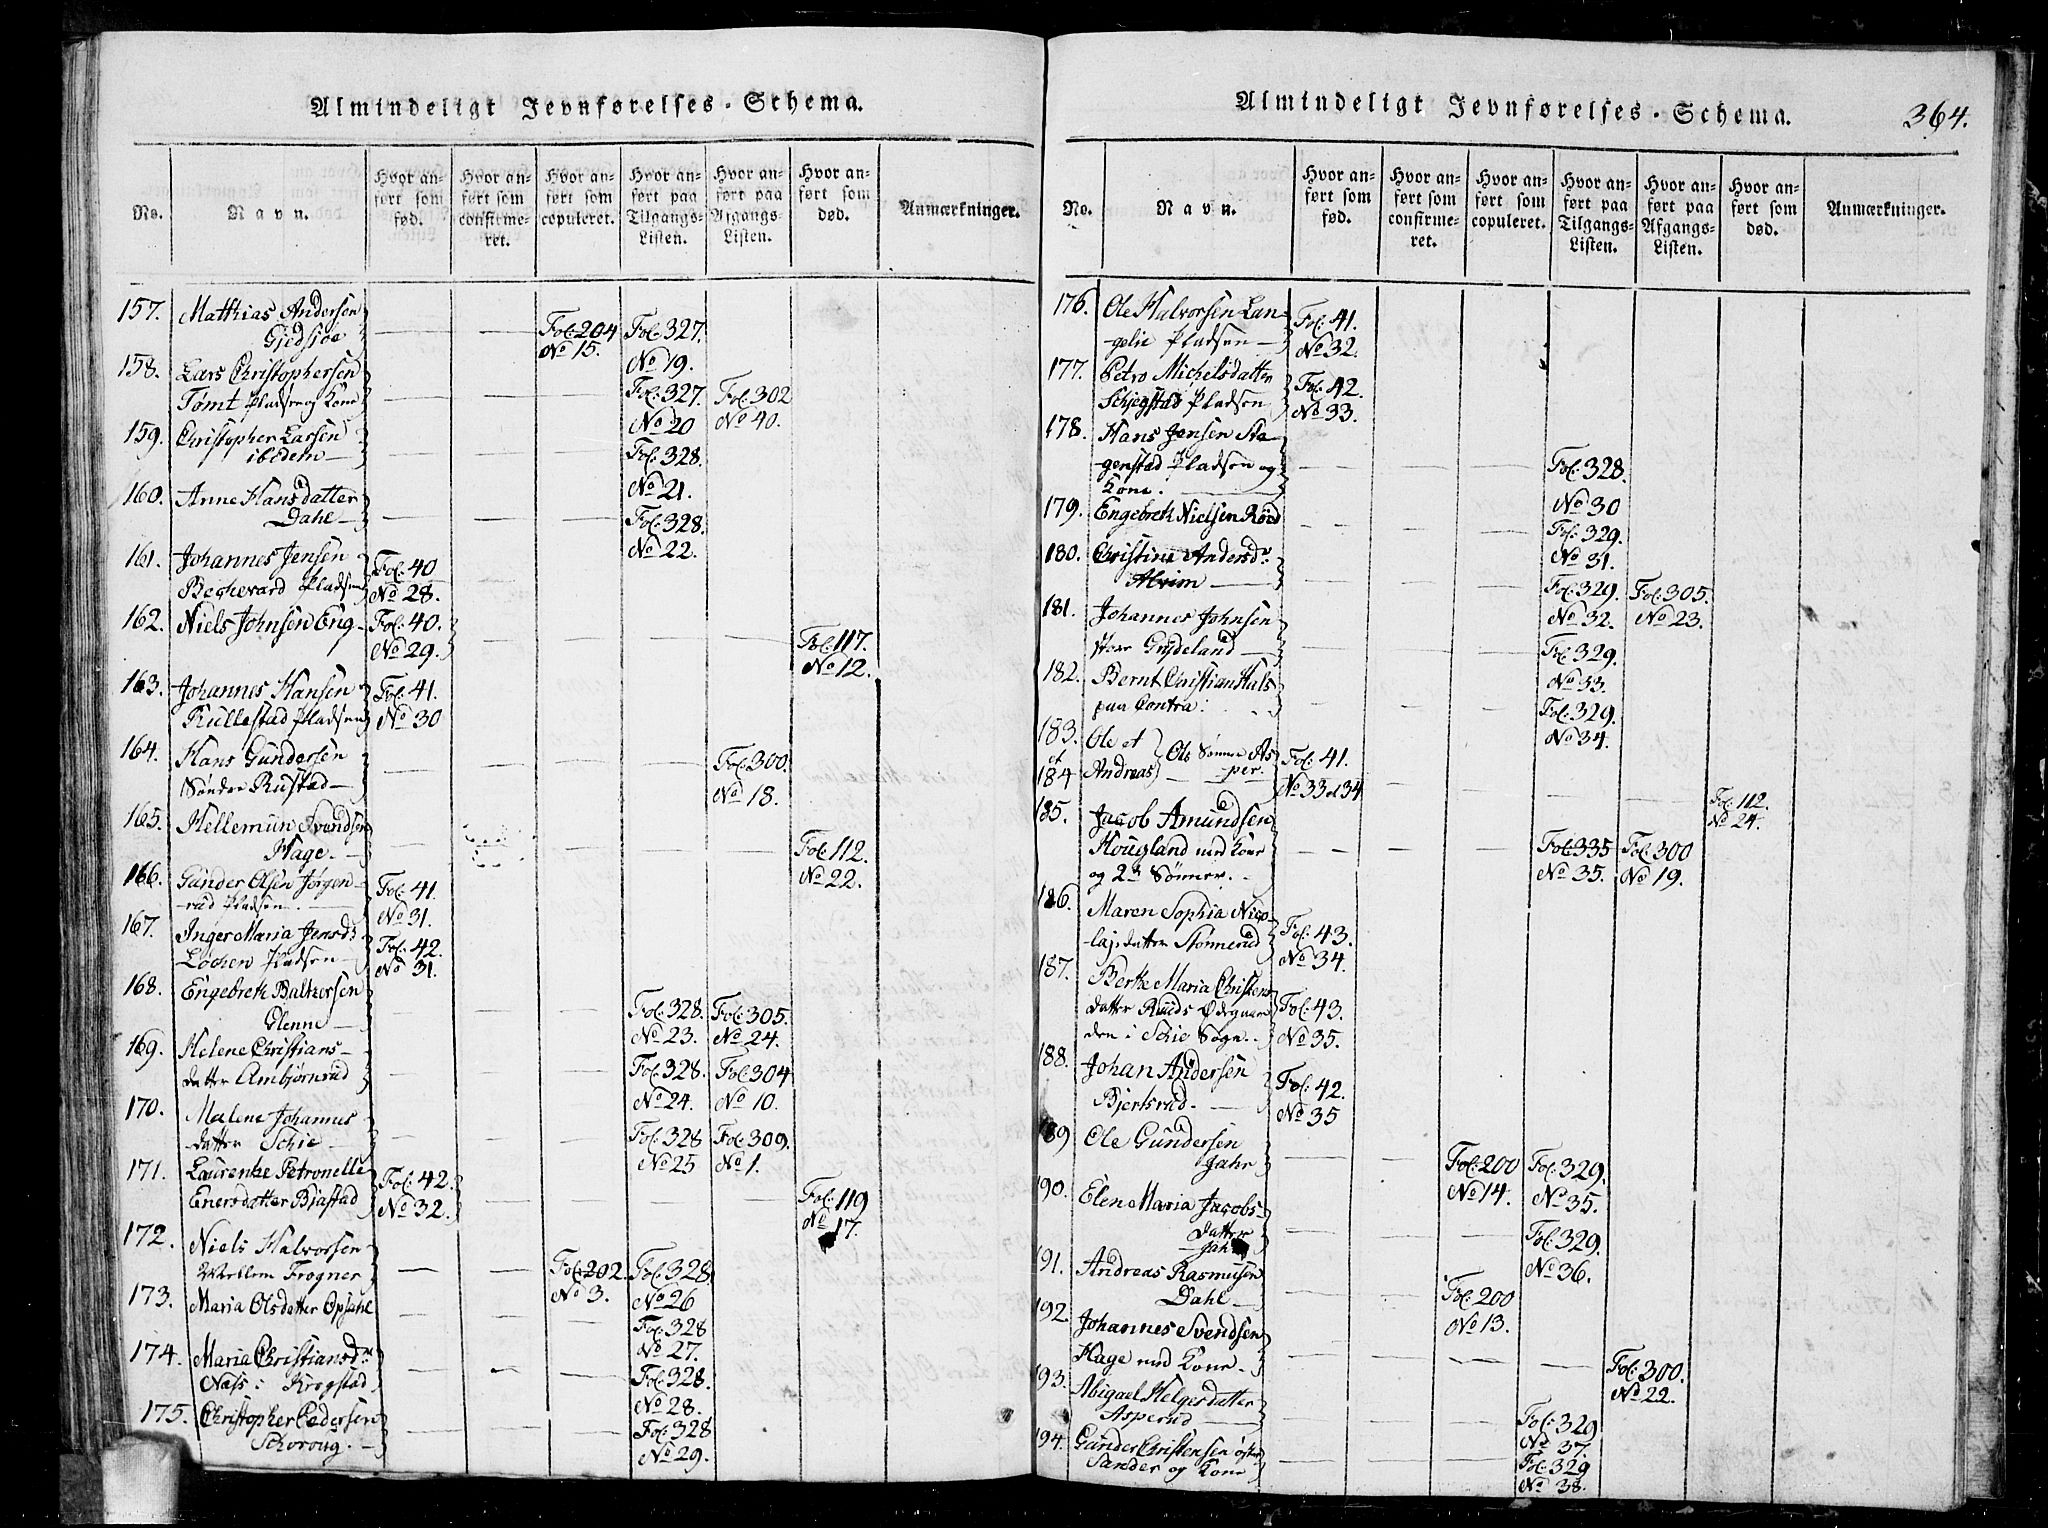 Almindeligt Jevnførelses-Schema.
No. Navn. Hvor anført som fød. Hvor anført som confirmeret. Hvor anført som copuleret. Hvor anført paa Tilgangs-Listen. Hvor anført paa Afgangs-Listen. Hvor anført som død. Anmærkninger.
157. Mathias Andersen
Gjedsjøe — — Fol: 204 Fol: 327.
No 15. No 19.
158. Lars Christophersen
Tømt Pladsen og Kone — — — Fol: 327. Fol: 302
No 20 No 40.
159. Christopher Larsen
ibidem — — — — Fol: 328.
No 21.
160. Anne Hansdatter
Dahl — — — — Fol: 328.
No 22.
161. Johannes Jensen Fol: 40
Pladsen No 28.
162. Niels Johnsen Eng — Fol: 40. — — — — Fol: 117.
No 29. No 12.
163. Johannes Hansen Fol: 41.
Kullestad Pladsen No 30
164. Hans Gundersen
Søndre Rustad — — — — — Fol: 300.
No 18.
165. Hellemun Svendsen
Hage. — — — — — — Fol: 112.
No 22.
166. Gunder Olsen Jørgen- Fol: 41.
rud Pladsen. — No 31.
167. Inger Maria Jensdr Fol: 42.
Løchen Pladsen — No 31.
168. Engebreth Baltzersen
Glenne — — — — Fol: 328. Fol: 305.
No 23. No 24.
169. Helene Christians-
datter Ambjørnrud — — — Fol: 328. Fol: 304
No 24. No 10.
170. Malene Johannes
datter Schie — — — — Fol: 328 Fol: 309.
No 25 No 1.
171. Laurentze Petronelle Fol: 42. — — — — Fol: 119
Enersdatter Bjastad No 32. No 17.
172. Niels Halvorsen
Mellem Frogner — — Fol: 202. Fol: 328
No 3. No 26
173. Maria Olsdatter Opsahl — — — Fol: 328
No 27.
174. Maria Christiansdr
Næss i Krogstad — — — Fol: 328.
No 28.
175. Christopher Pedersen
— — — — Fol: 328
No 29.
Almindeligt Jevnførelses-Schema. 364.
No. Navn. Hvor anført som fød. Hvor anført som confirmeret. Hvor anført som copuleret. Hvor anført paa Tilgangs-Listen. Hvor anført paa Afgangs-Listen. Hvor anført som død. Anmærkninger.
176. Ole Halvorsen Lan- Fol: 41.
gelie Pladsen — No 32.
177. Petro Michelsdatter Fol: 42.
Schjegstad Pladsen No 33.
178. Hans Jensen Sta-
genstad Pladsen og — — — Fol: 328.
Kone. — No 30
179. Engebreth Nielsen Røed — — — Fol: 329.
No 31.
180. Christine Andersdr
Alvim — — — — Fol: 329. Fol: 305.
No 32. No 23.
181. Johannes Johnsen
store Grydeland — — — — Fol: 329.
No 33.
182. Bernt Christian Hals
paa Contra: — — — Fol: 329.
No 34.
183. Ole et Ols Sønner As Fol: 41.
et
184 Andreas — per. No 33 et 34 — — — — Fol: 112.
No 24.
185. Jacob Amundsen
Hougland med Kone — — — Fol: 335 Fol: 300
og 2de Sønner. — No 35. No 19.
186. Maren Sophia Nico-
lajsdatter Stønnerud Fol: 43.
No 34.
187. Berthe Maria Christens
datter Ruuds Ødegaar Fol: 43.
den i Schie Sogn. No 35.
188. Johan Andersen Fol: 42.
Bjertsrud. — No 35
189 Ole Gundersen
Jahr — — Fol: 200 Fol: 329.
No 14. No 35.
190. Elen Maria Jacobs-
datter — — — Fol: 329.
Jahr No 36.
191. Andreas Rasmusen
Dahl — — — Fol: 200
No 13.
192. Johannes Svendsen
Hage med Kone. — — — — — Fol: 300.
No 22.
193. Abigael Helgesdatter
Asperud — — — — Fol: 329
No 37.
194. Gunder Christensen østre
Sander og Kone — — — Fol: 329
No 38.